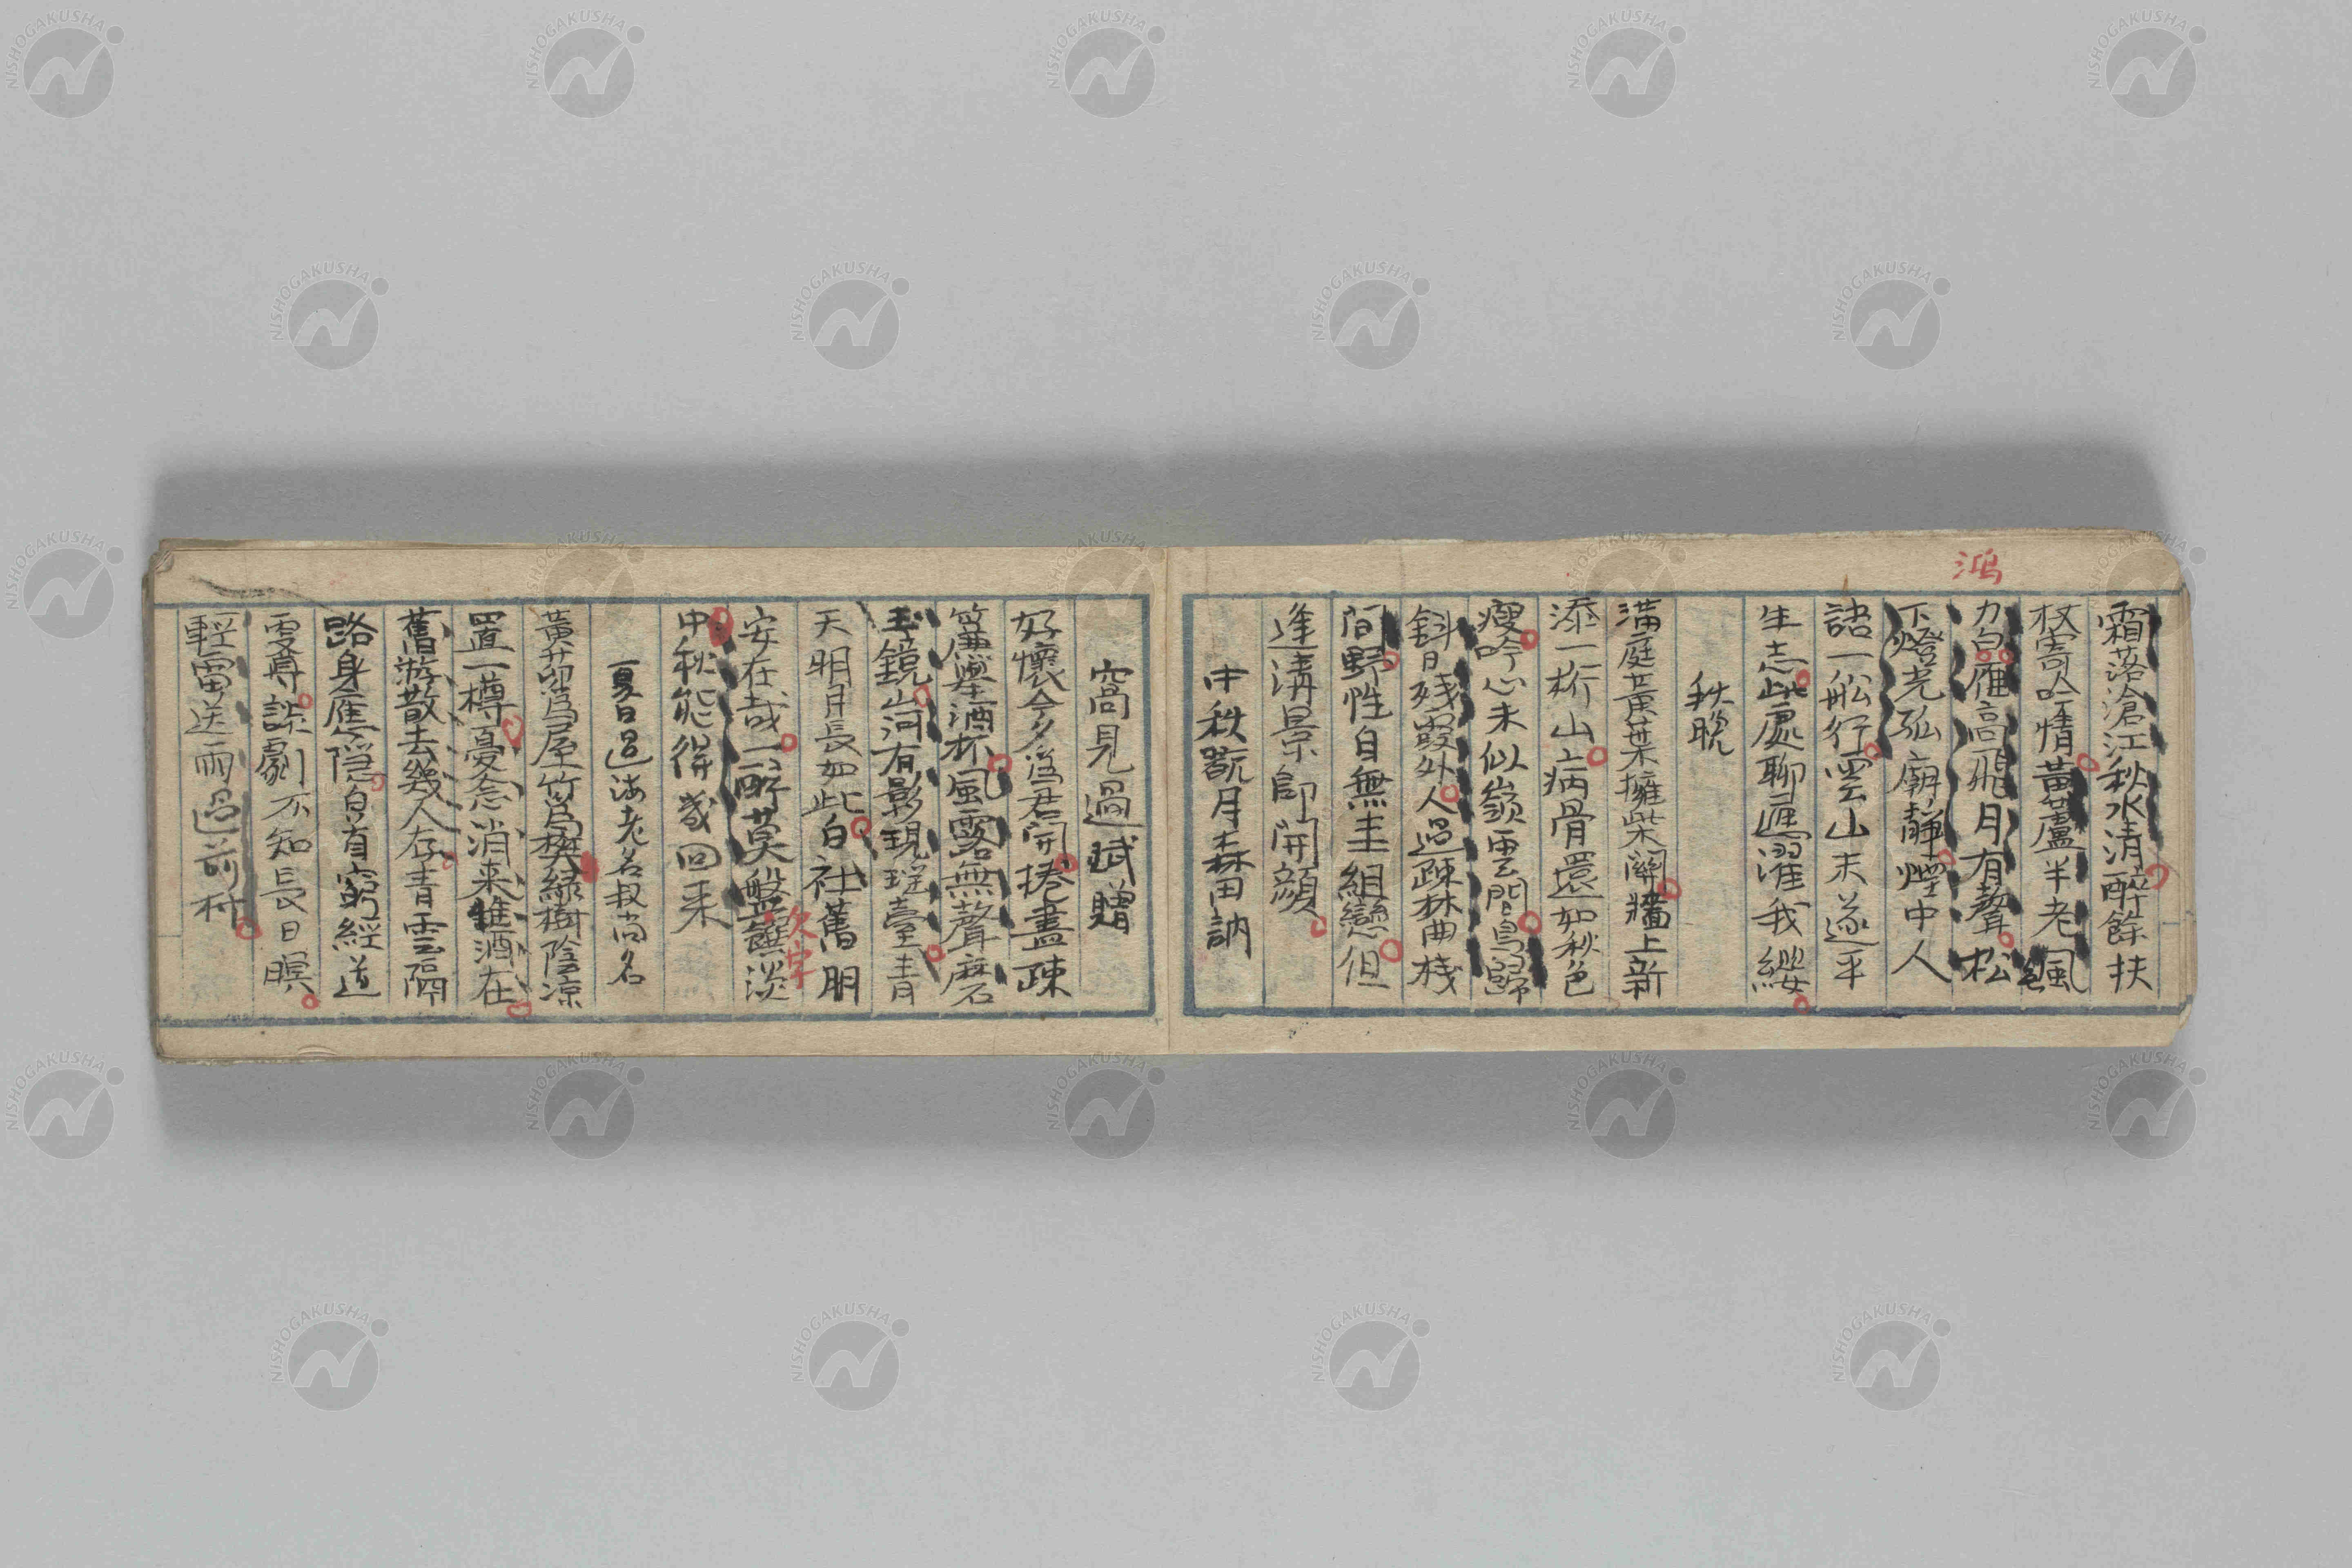 鴻
霜落滄江秋水清醉餘扶
杖寄吟情黃蘆半老風
力勁雁高飛月有聲松
下燈光孤廟靜煙中人
語一船行雲山未遂平
生志此處聊應濯我纓
秋晩
滿庭黃葉擁柴關牆上新
添一桁山病骨還如秋色
瘦吟心未似嶺雲閒鳥歸
斜日殘霞外人過疎林曲棧
間野性自無圭組戀但
逢溝景卽開顏
中秋翫月森田訥
窩見過賦贈
好懷今夕爲君開捲盡疎
簾擧酒杯風露無聲磨
玉鏡山河有影現瑤臺靑
天明月長如此白社舊朋
安在哉一醉莫盤饌淡
欠字
中秋能得幾回來
夏日過海老名叔尚名
黃茆爲屋竹爲樊綠樹陰凉
置一樽憂念消來惟酒在
舊游散去幾人存靑雲隔
路身應隱白首窮經道
尊談劇不知長日暝
輕雷送雨過前村
NISHOGAKUSHA